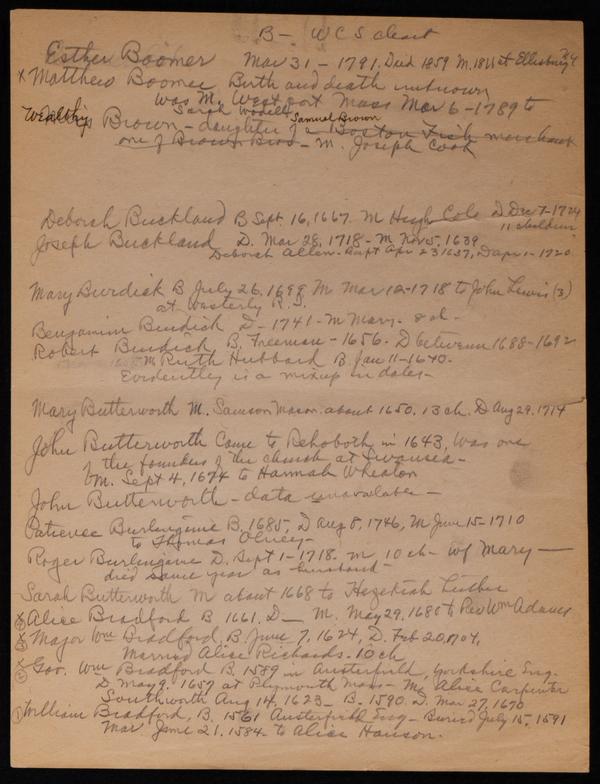 B- W C S chart
Esther Boomer Mar 31 - 1791. Died 1859 M. 1811 at Ellisburg N.Y.
x Matthew Boomer Birth and death unknown
was M. Westport Mass Mar 6 - 1789 to
Sarah Wodell
Wealthy Brown - daughter of Samuel Brown a Boston Fish merchant
one of Brown Bros - M. Joseph Cook
Deborah Buckland B Sept. 16, 1667. M Hugh Cole D Dec 7 - 1724
11 children
Joseph Buckland D. Mar 28, 1718 - M Nov 5, 1659
Deborah Allen - Bapt Apr 23 1637, D Apr 1 - 1720
Mary Burdick B July 26, 1699 M Mar 12 - 1718 to John Lewis (3)
at Westerly R.I.
Benjamin Burdick D - 1741 - M Mary. 8 ch -
Robert Burdick B, Freeman - 1656. D between 1688 - 1692
M Ruth Hubbard B. Jan 11 - 1640.
Evidently is a mixup in dates -
Mary Butterworth M. Samson Mason. about 1650. 13 ch. D Aug 29, 1714
John Butterworth Came to Rehoboth in 1643, Was one
the founders of the church at Swansea -
M. Sept 4, 1674 to Hannah Wheaton
John Butterworth - data unavailable -
Patience Burlingime B. 1685, D Aug 8, 1746, M June 15 - 1710
to Thomas Olney -
Roger Burlingime D. Sept 1 - 1718. M 10 ch - wf Mary —
died same year as husband -
Sarah Butterworth M about 1668 to Hezekiah Luther
x Alice Bradford B 1661. D — M. May 29, 1680 to Rev Wm Adams
x Major Wm Bradford, B. June 7, 1624, D. Feb 20, 1704,
Married Alice Richards. 10 ch
x Gov. Wm Bradford B. 1589 in Austerfield, Yorkshire Eng -
② D May 9. 1657 at Plymouth Mass - M. Alice Carpenter
Southworth Aug 14, 1623 - B. 1590. D. Mar 27, 1670
① William Bradford, B. 1561 Austerfield Eng - Buried July 15, 1591
Mar. June 21, 1584 to Alice Hanson.